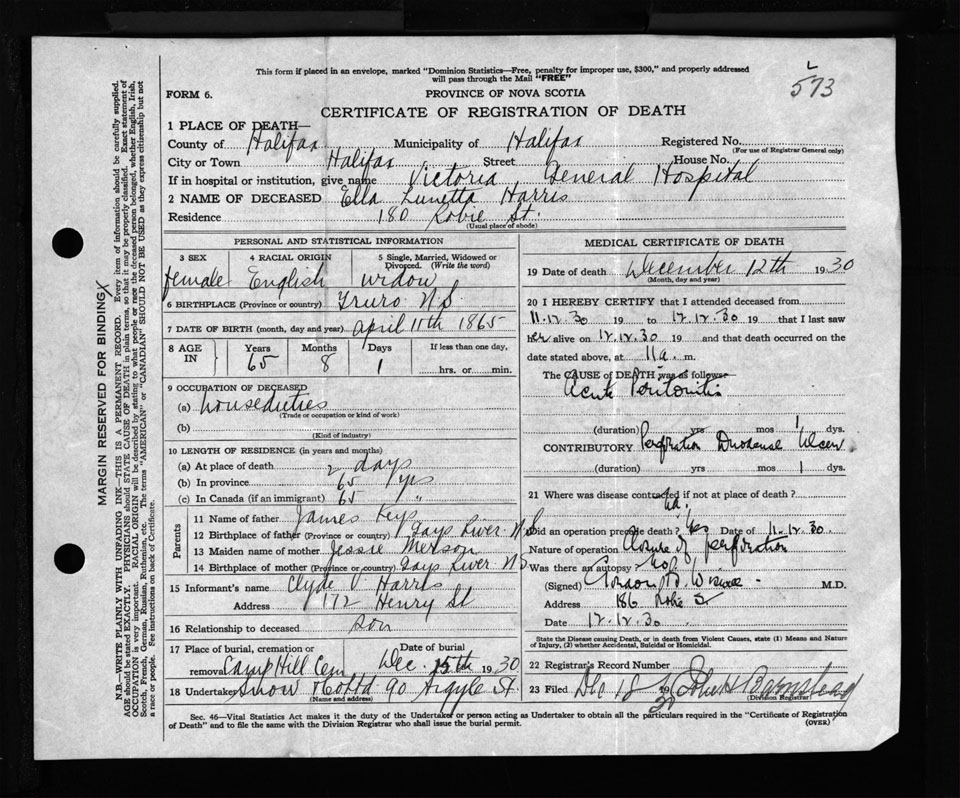 573
This form if placed in an envelope, marked "Dominion Statistics—Free, penalty for improper use, $300," and properly addressed
will pass through the Mail "FREE"
FORM 6.
PROVINCE OF NOVA SCOTIA
CERTIFICATE OF REGISTRATION OF DEATH
1 PLACE OF DEATH—
County of Halifax Municipality of Halifax Registered No.
(For use of Registrar General only)
City or Town Halifax Street House No.
If in hospital or institution, give name Victoria General Hospital
2 NAME OF DECEASED Ella Lunetta Harris
Residence 180 Robie St.
(Usual place of abode)
PERSONAL AND STATISTICAL INFORMATION
3 SEX 4 RACIAL ORIGIN 5 Single, Married, Widowed or
Divorced. (Write the word)
female English widow
6 BIRTHPLACE (Province or country) Truro N.S.
7 DATE OF BIRTH (month, day and year) April 11th 1865
8 AGE IN Years Months Days If less than one day,
65 8 1 hrs. or min.
9 OCCUPATION OF DECEASED
(a) houseduties
(Trade or occupation or kind of work)
(b)
(Kind of industry)
10 LENGTH OF RESIDENCE (in years and months)
(a) At place of death 2 days
(b) In province 65 yrs
(c) In Canada (if an immigrant) 65 "
Parents
11 Name of father James Keys
12 Birthplace of father (Province or country) Gays River N.S
13 Maiden name of mother Jessie
14 Birthplace of mother (Province or country) Gays River N.S
15 Informant's name Clyde V Harris
Address 172 Henry St
16 Relationship to deceased son
17 Place of burial, cremation or Date of burial
removal Camp Hill Cem Dec. 15th 1930
18 Undertaker Snow & Co Ltd 90 Argyle St.
(Name and address)
MEDICAL CERTIFICATE OF DEATH
19 Date of death December 12th 1930
(Month, day and year)
20 I HEREBY CERTIFY that I attended deceased from
11.12.30 19 to 12.12.30 19 that I last saw
her alive on 12.12.30 19 and that death occurred on the
date stated above, at 11 a. m.
The CAUSE OF DEATH was as follows
Acute Peritonitis
(duration) yrs mos 1 dys.
CONTRIBUTORY Perforation Duodenal Ulcer
(duration) yrs mos 1 dys.
21 Where was disease contracted if not at place of death?
Did an operation precede death? Yes Date of 11.12.30.
Nature of operation Closure of perforation
Was there an autopsy? No
(Signed) M.D.
Address 186 Robie St
Date 12.12.30
State the Disease causing Death, or in death from Violent Causes, state (1) Means and Nature
of Injury, (2) whether Accidental, Suicidal or Homicidal.
22 Registrar's Record Number
23 Filed Dec 18 1930 John H Barnstead
(Division Registrar)
Sec. 46—Vital Statistics Act makes it the duty of the Undertaker or person acting as Undertaker to obtain all the particulars required in the "Certificate of Registration
of Death" and to file the same with the Division Registrar who shall issue the burial permit.
(OVER)
MARGIN RESERVED FOR BINDING
N.B.—WRITE PLAINLY WITH UNFADING INK—THIS IS A PERMANENT RECORD. Every item of information should be carefully supplied.
AGE should be stated EXACTLY. PHYSICIANS should STATE CAUSE OF DEATH in plain terms, so that it may be properly classified. Exact statement of
OCCUPATION is very important. RACIAL ORIGIN will be described by stating to what people or race the deceased person belonged, whether English, Irish,
Scotch, French, German, Russian, Ruthenian, etc. The terms "AMERICAN" or "CANADIAN" SHOULD NOT BE USED as they express citizenship but not
a race or people. See instructions on back of Certificate.